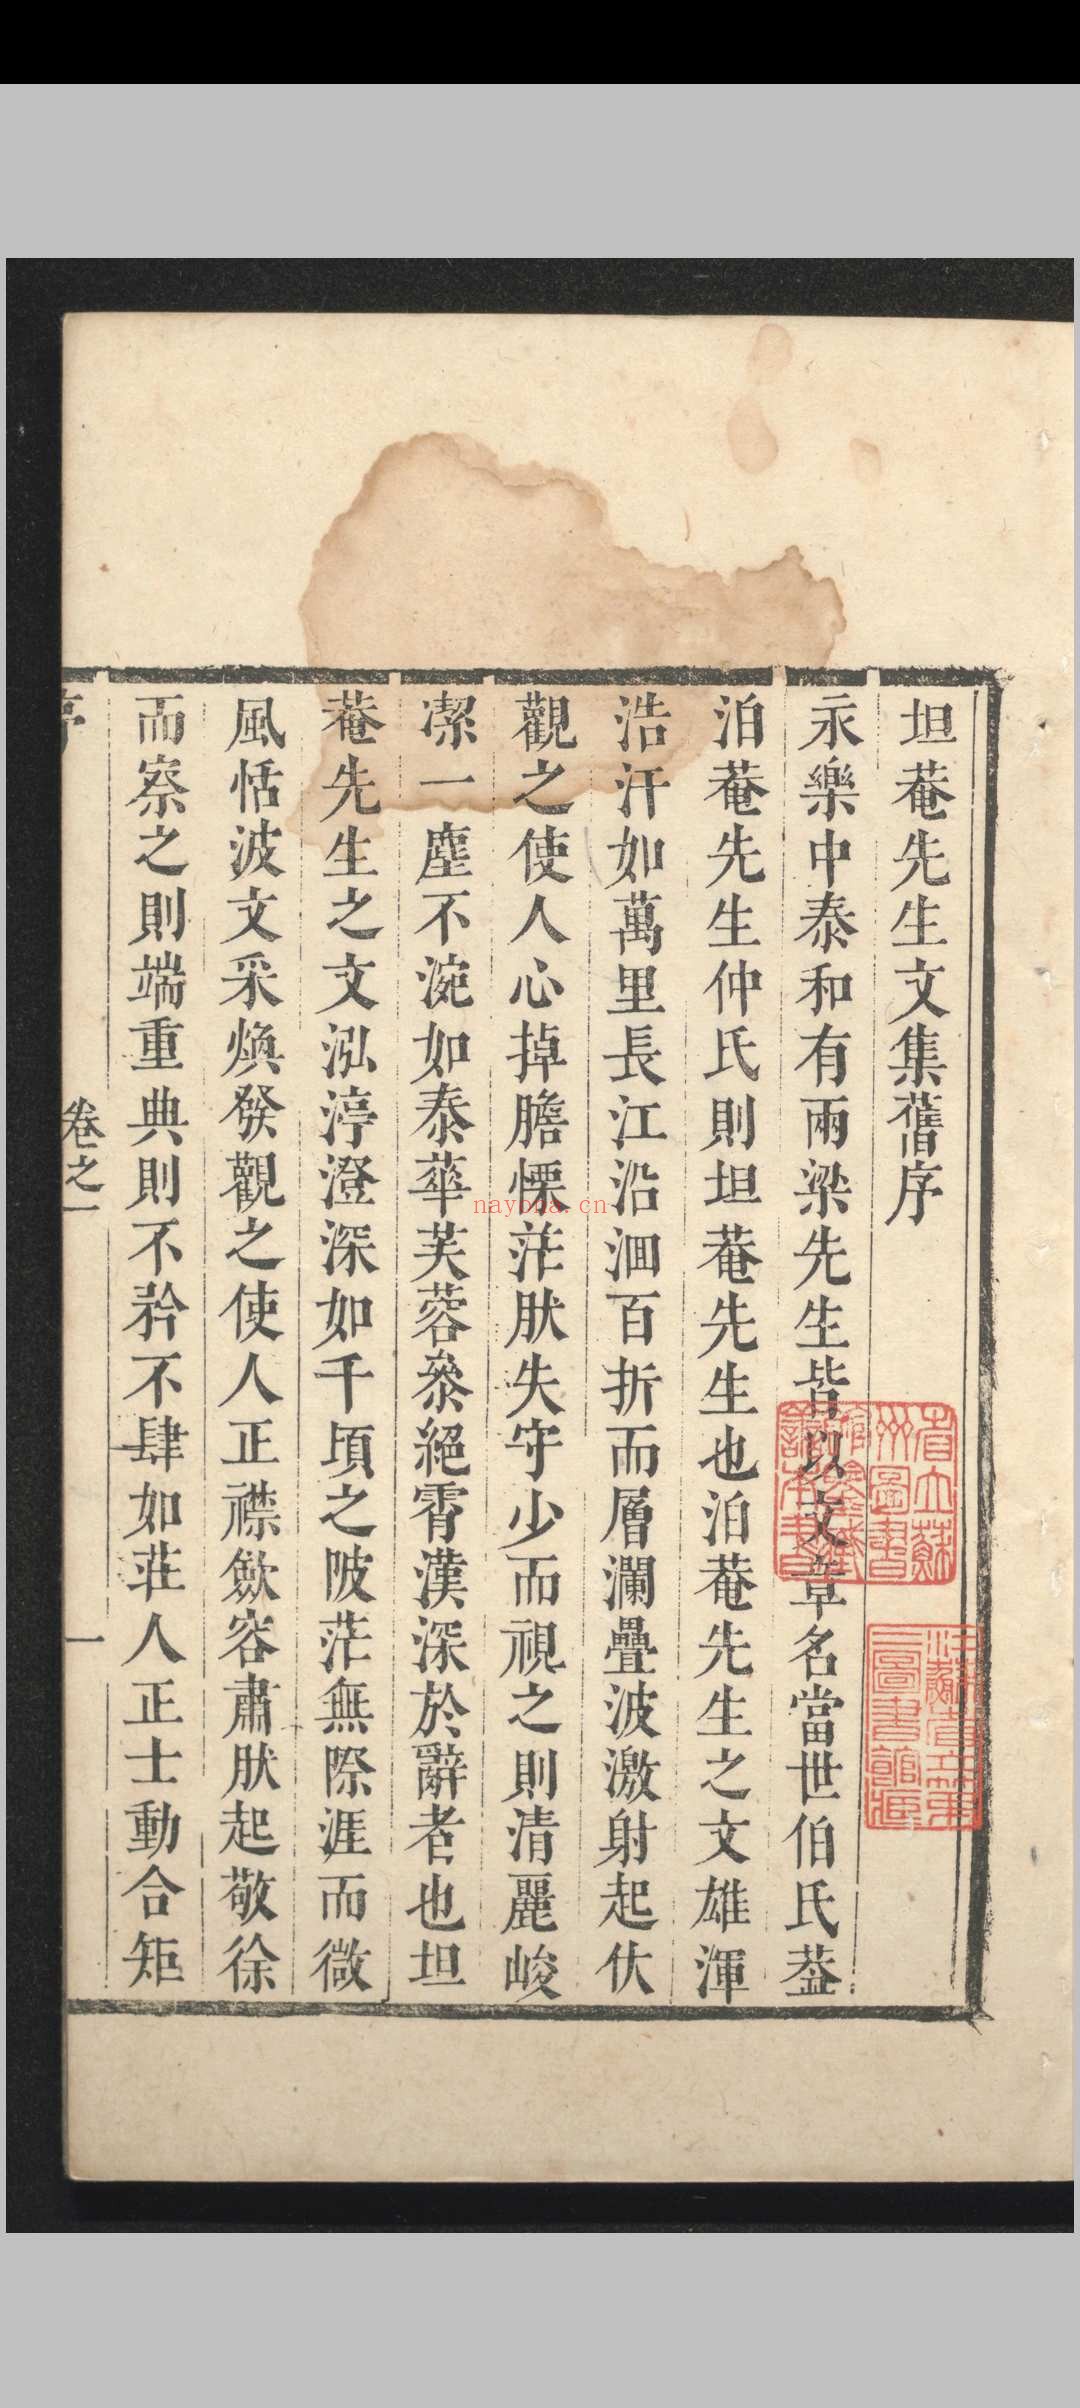 坦菴先生文集舊序
永樂中泰和有兩梁先生皆以文章名當世伯氏葢
泊菴先生仲氏則坦菴先生也泊菴先生之文雄渾
浩汗如萬里長江沿洄百折而層瀾疊波激射起伏
觀之使人心掉膽慄茫肰失守少而視之則清麗峻
潔一塵不涴如泰華芙蓉叅絕霄漢深於辭者也坦
菴先生之文泓渟澄深如千頃之陂茫無際涯而微
風恬波文采煥發觀之使人正襟斂容肅肰起敬徐
而察之則端重典則不矜不肆如莊人正士動合矩
卷之一
一
省立蘇州圖書館
江蘇省立第二圖書館藏
nayona.cn